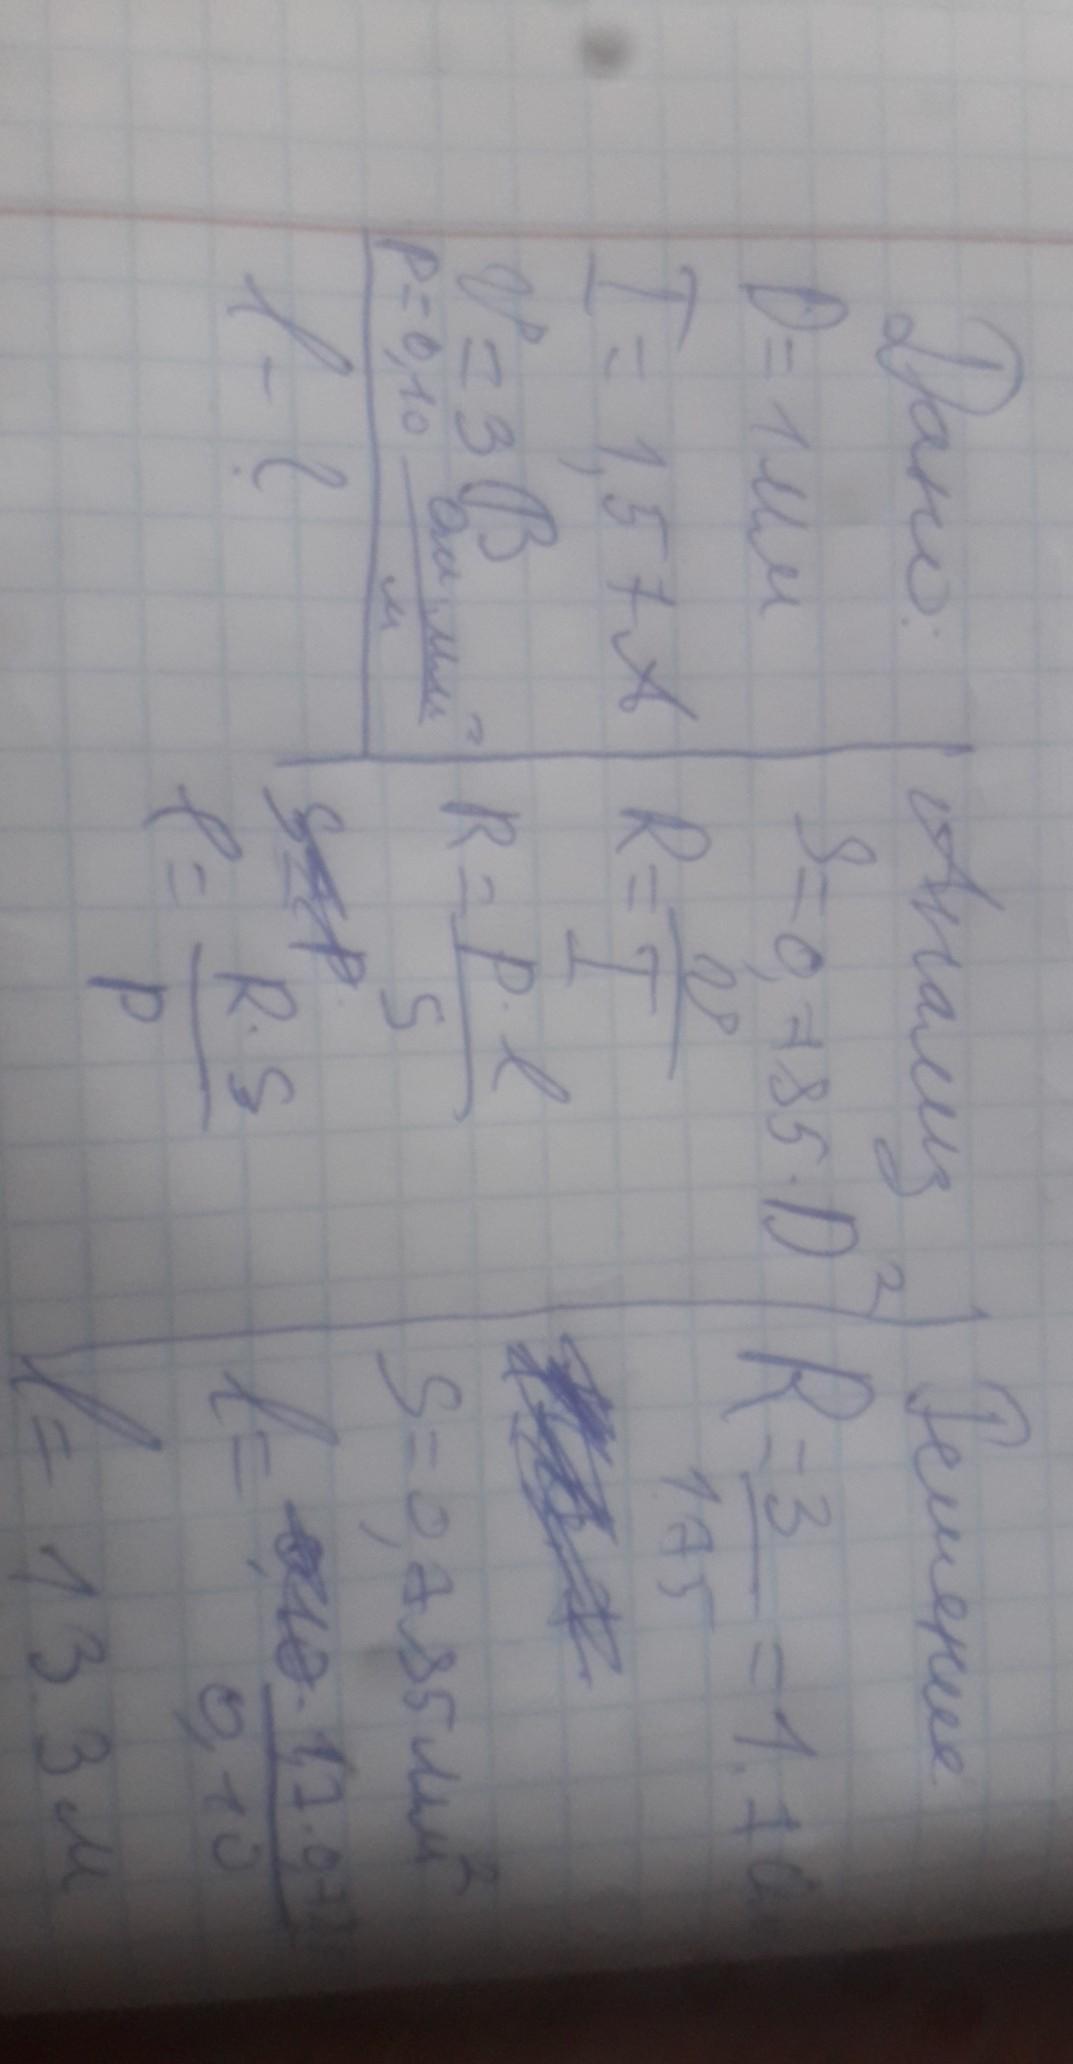 Дано:
D = 1 мм
I = 1,57 А
U = 3 В
ρ = 0,10 Ом мм² / м
l - ?
Анализ
S = 0,785 · D²
R = U / I
R = ρ · l / S
l = R · S / ρ
Решение
R = 3 / 1.75 = 1.7
S = 0,785 мм²
l = 1,7 · 0,7 / 0,10
l = 13 3 м